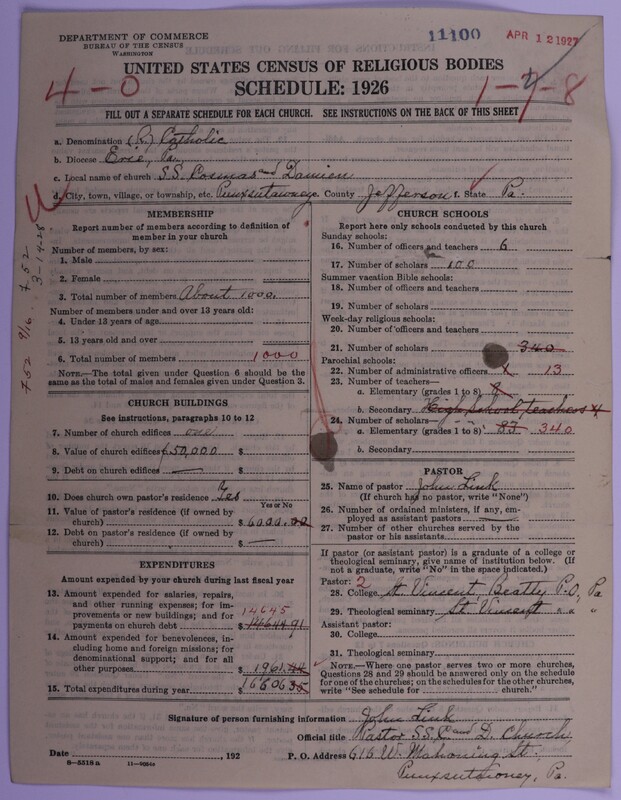 DEPARTMENT OF COMMERCE
BUREAU OF THE CENSUS
WASHINGTON
11100
APR 12 1927
UNITED STATES CENSUS OF RELIGIOUS BODIES
SCHEDULE: 1926
4-0
1-7-8
FILL OUT A SEPARATE SCHEDULE FOR EACH CHURCH. SEE INSTRUCTIONS ON THE BACK OF THIS SHEET
a. Denomination (R.) Catholic
b. Diocese Erie, Pa.
c. Local name of church S.S. Cosmas and Damien
d. City, town, village, or township, etc. Punxsutawney e. County Jefferson f. State Pa.
752 9/16. 752
3-14-28
MEMBERSHIP
Report number of members according to definition of
member in your church
Number of members, by sex:
1. Male
2. Female
3. Total number of members About 1000.
Number of members under and over 13 years old:
4. Under 13 years of age
5. 13 years old and over
6. Total number of members 1000
NOTE.—The total given under Question 6 should be
the same as the total of males and females given under Question 3.
CHURCH BUILDINGS
See instructions, paragraphs 10 to 12
7. Number of church edifices one
8. Value of church edifices 650,000 $
9. Debt on church edifices — $
10. Does church own pastor's residence? Yes
Yes or No
11. Value of pastor's residence (if owned by
church) $ 6000.00
12. Debt on pastor's residence (if owned by
church) $ —
EXPENDITURES
Amount expended by your church during last fiscal year
13. Amount expended for salaries, repairs,
and other running expenses; for im-
provements or new buildings; and for
payments on church debt 14645
$ 14644 91
14. Amount expended for benevolences, in-
cluding home and foreign missions; for
denominational support; and for all
other purposes $ 1961.44
15. Total expenditures during year $ 16606 35
CHURCH SCHOOLS
Report here only schools conducted by this church
Sunday schools:
16. Number of officers and teachers 6
17. Number of scholars 100
Summer vacation Bible schools:
18. Number of officers and teachers
19. Number of scholars
Week-day religious schools:
20. Number of officers and teachers
21. Number of scholars 340
Parochial schools:
22. Number of administrative officers 1 13
23. Number of teachers—
a. Elementary (grades 1 to 8) 8
b. Secondary High School, teachers 4
24. Number of scholars—
a. Elementary (grades 1 to 8) 83 340
b. Secondary
PASTOR
25. Name of pastor John Link
(If church has no pastor, write "None")
26. Number of ordained ministers, if any, em-
ployed as assistant pastors
27. Number of other churches served by the
pastor or his assistants
If pastor (or assistant pastor) is a graduate of a college or
theological seminary, give name of institution below. (If
not a graduate, write "No" in the space indicated.)
Pastor: 2
28. College St. Vincent, Beatty P.O., Pa
29. Theological seminary St. Vincent " " "
Assistant pastor:
30. College
31. Theological seminary
NOTE.—Where one pastor serves two or more churches,
Questions 28 and 29 should be answered only on the schedule
for one of the churches; on the schedules for the other churches,
write "See schedule for church."
Signature of person furnishing information John Link
Official title Pastor SS. C and D. Church
Date , 192 P. O. Address 616 W. Mahoning St.
Punxsutawney, Pa.
8-5518 a